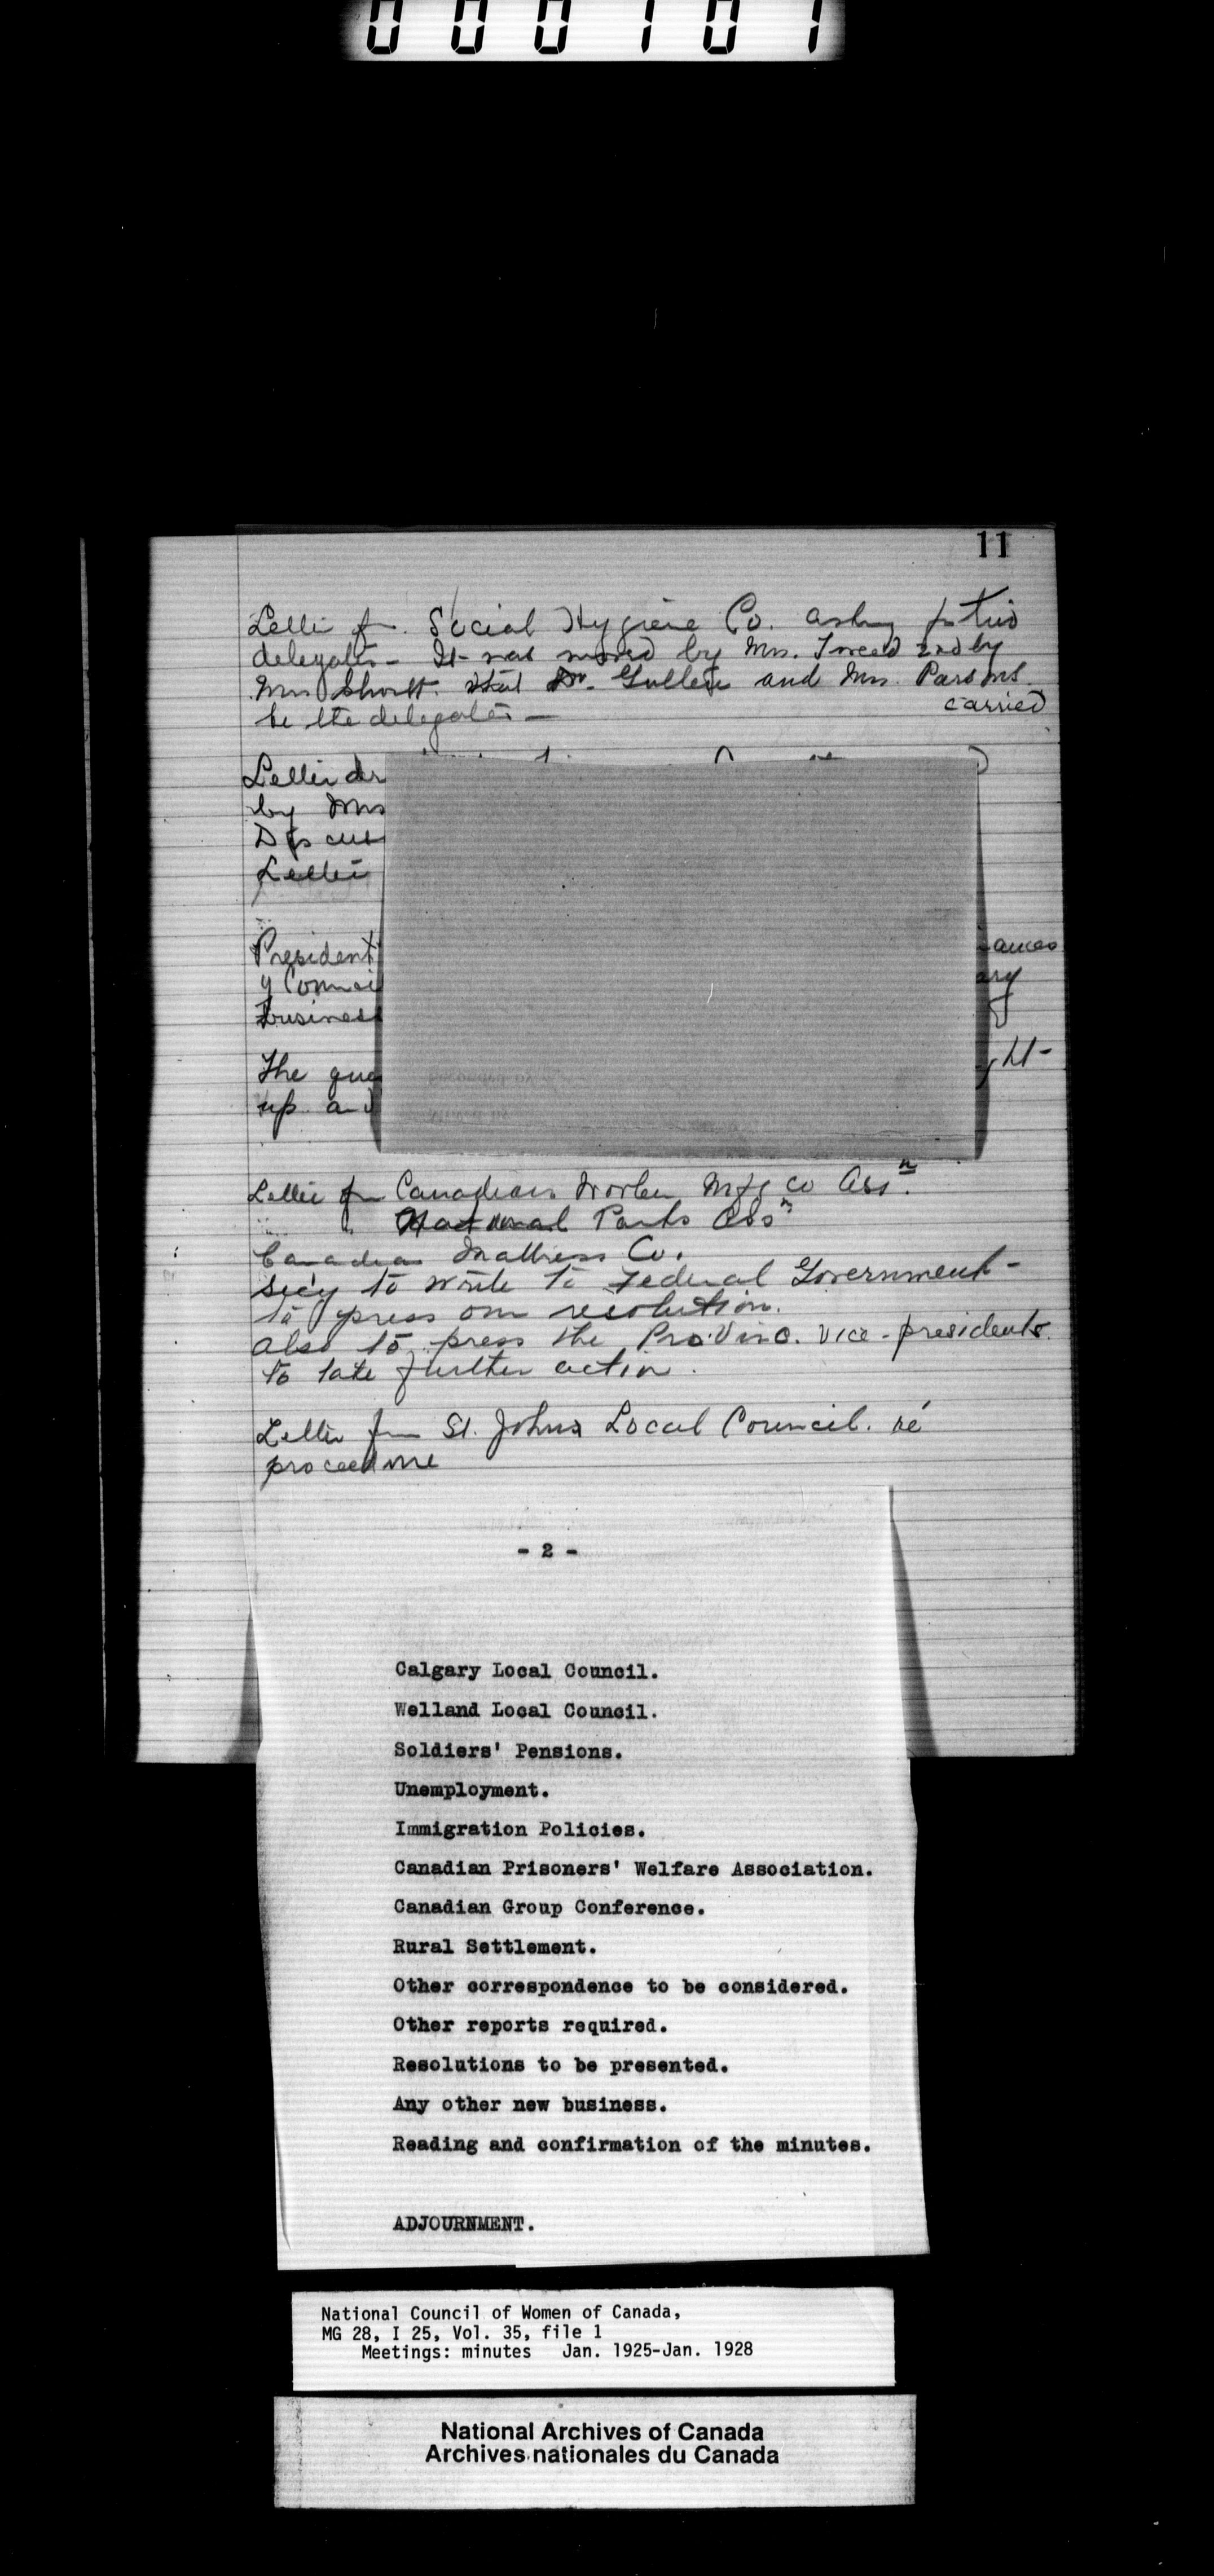 000101
11
Letter fr. Social Hygiene Co. asking for two
delegates - It was moved by Mrs. Tweed 2nd by
Mrs Shortt. that Dr. Gullen and Mrs. Parsons.
be the delegates - carried
Letter
by Mrs
Discus
Letter
President
ances
y Counci
ary
business
The que
ght-
up and
Letter fr Canadian Woolen Mfg Co Assn.
National Parks Assn
Canadian Mattress Co.
Sec'y to write to Federal Government-
to press our resolution.
also to press the Provinc. Vice-presidents.
to take further action.
Letter from St. Johns Local Council. ré
proceedure
- 2 -
Calgary Local Council.
Welland Local Council.
Soldiers' Pensions.
Unemployment.
Immigration Policies.
Canadian Prisoners' Welfare Association.
Canadian Group Conference.
Rural Settlement.
Other correspondence to be considered.
Other reports required.
Resolutions to be presented.
Any other new business.
Reading and confirmation of the minutes.
ADJOURNMENT.
National Council of Women of Canada,
MG 28, I 25, Vol. 35, file 1
Meetings: minutes Jan. 1925-Jan. 1928
National Archives of Canada
Archives nationales du Canada